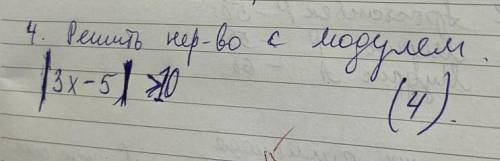 4. Решить нер-во с модулем.
|3x-5| >10 (4).